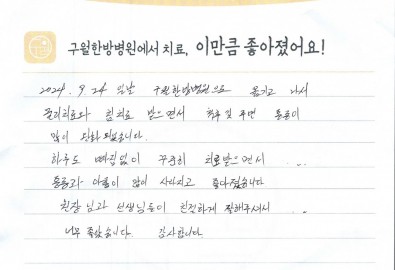 구월한방병원에서 치료, 이만큼 좋아졌어요!
2024. 9.24 일날 구월한방병원으로 옮기고 나서
물리치료와 침치료 받으면서 척추 및 주변 통증이
많이 완화 되었습니다.
하루도 빠짐없이 꾸준히 치료받으면서 ...
통증과 아픔이 많이 사라지고 좋아졌습니다
원장님과 선생님들이 친절하게 잘해주셔서 ...
너무 좋았습니다. 감사합니다.